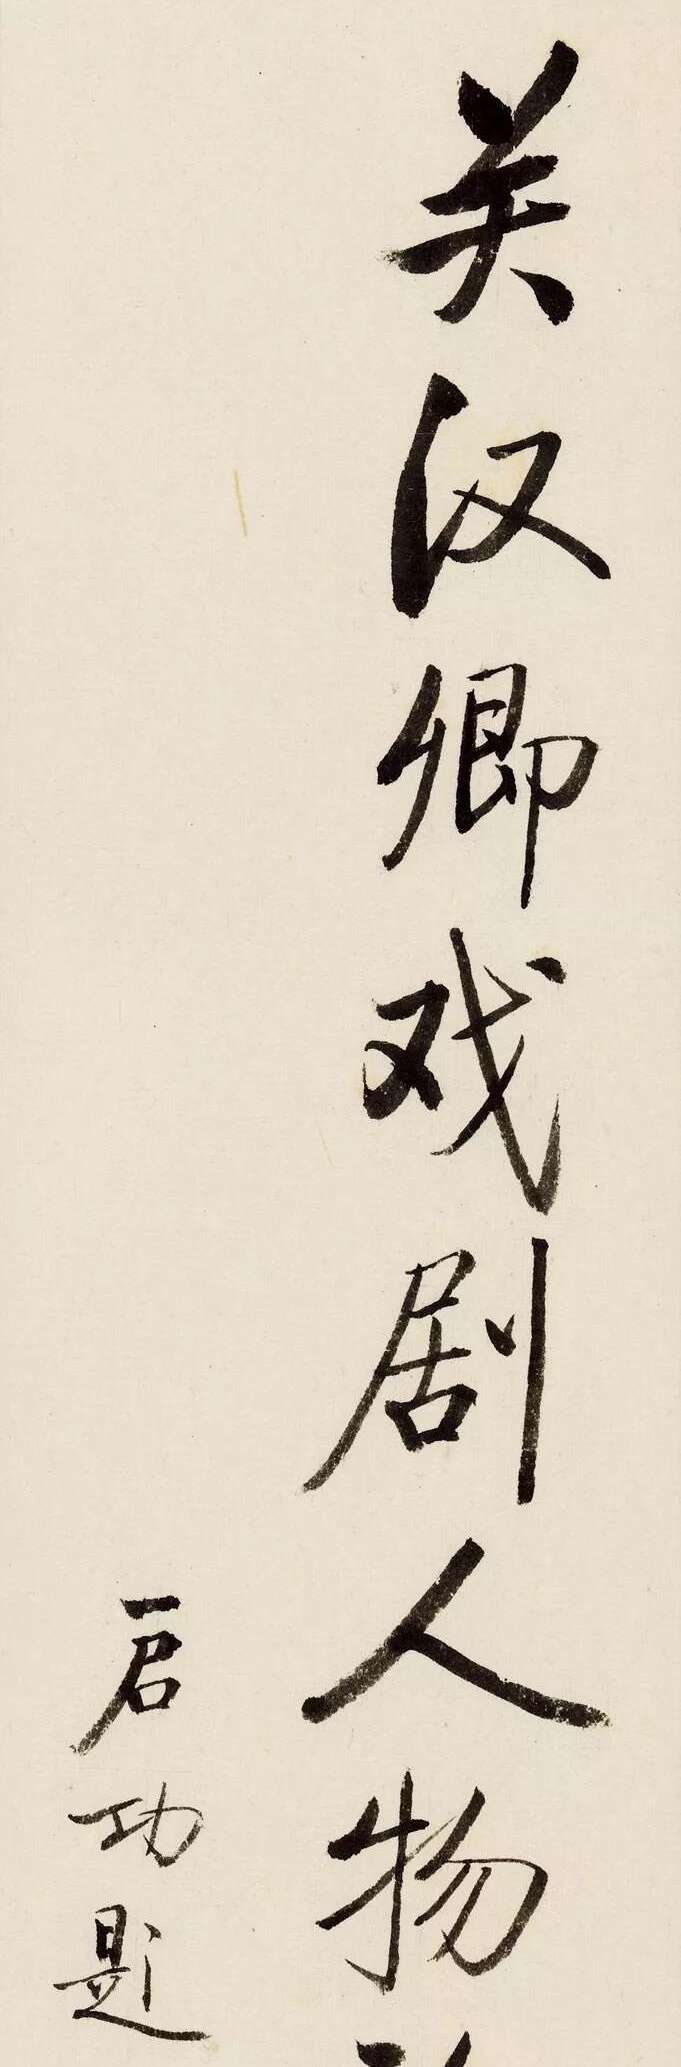 关汉卿戏剧人物
启功题